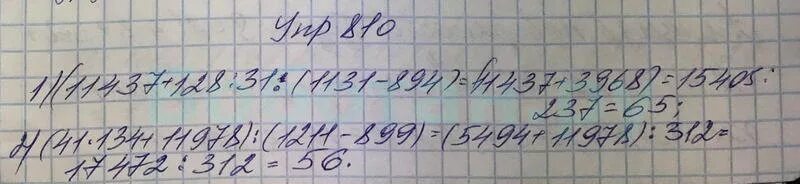 Упр 810
1) (11437+128:31:(1131-894)=(11437+3968)=15405:
237=65;
2) (41·134+11978):(1211-899)=(5494+11978):312=
17472:312=56.